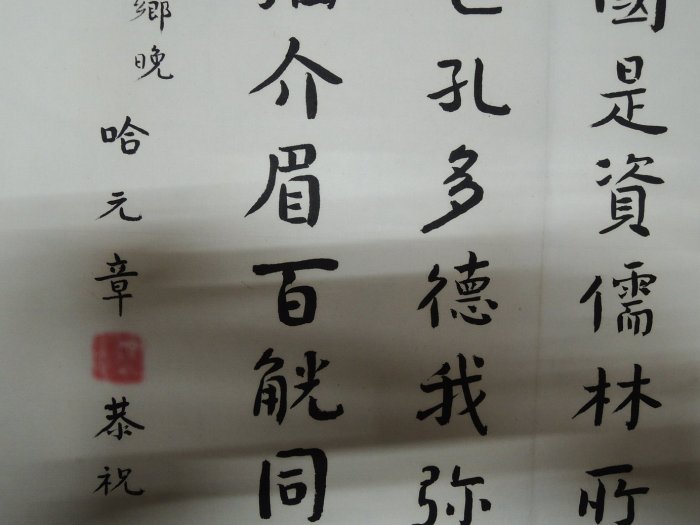 國是資儒林所
孔多德我弥
介眉百觥同
鄉晚哈元章恭祝